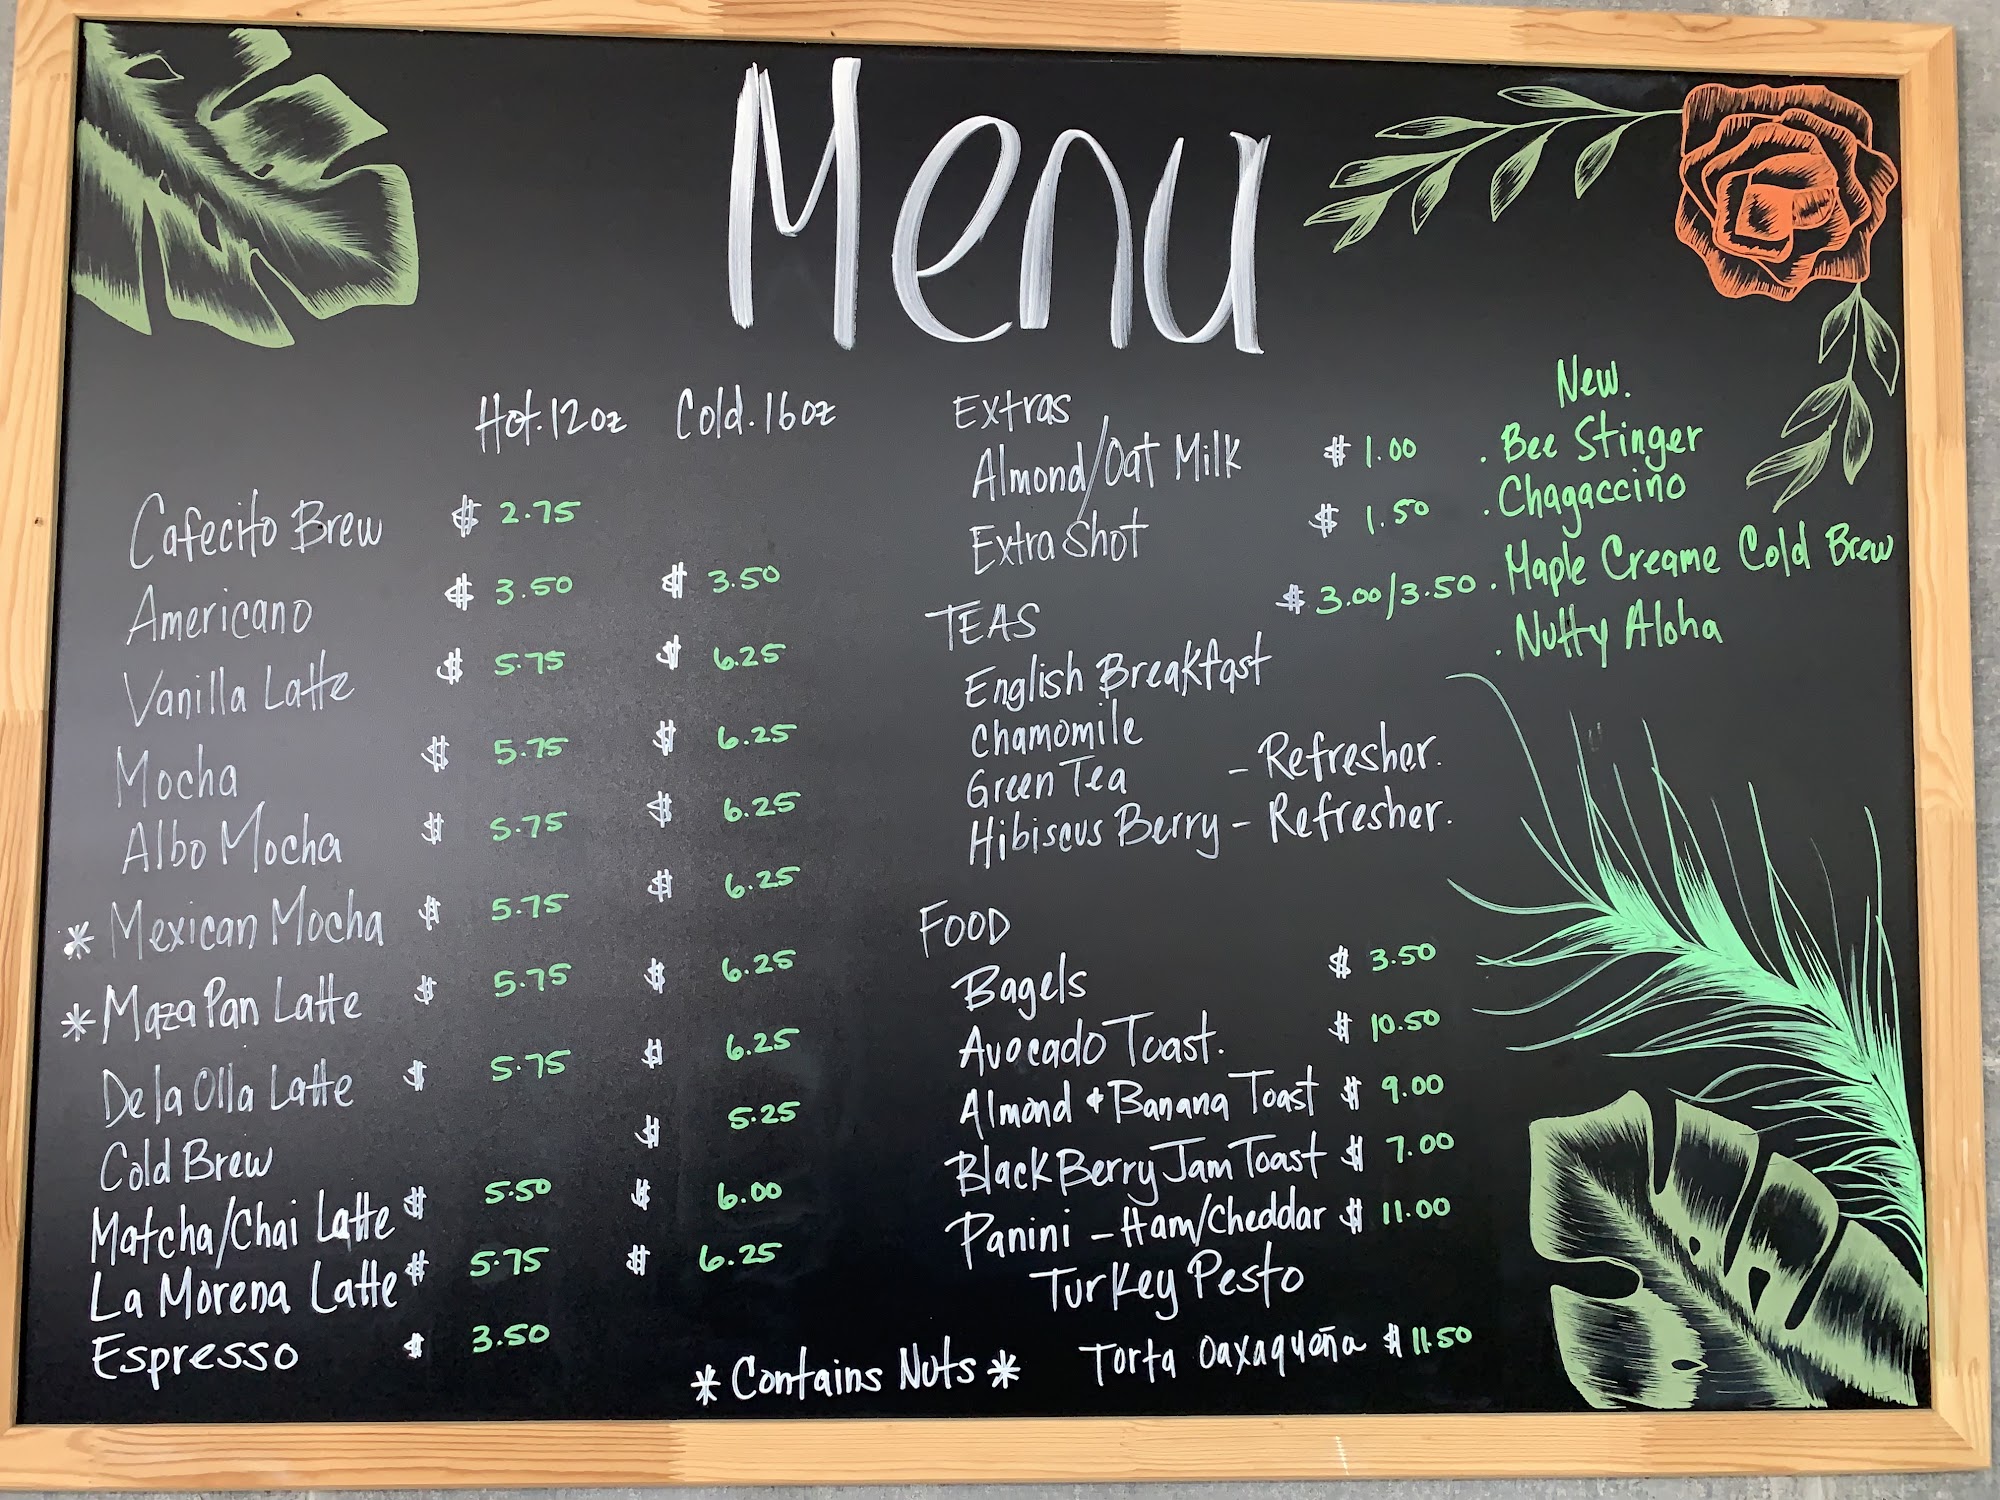 Menu
Hot.12oz Cold.16oz
Cafecito Brew $ 2.75
Americano $ 3.50 $ 3.50
Vanilla Latte $ 5.75 $ 6.25
Mocha $ 5.75 $ 6.25
Albo Mocha $ 5.75 $ 6.25
* Mexican Mocha $ 5.75 $ 6.25
* MazaPan Latte $ 5.75 $ 6.25
De la Olla Latte $ 5.75 $ 6.25
Cold Brew $ 5.25
Matcha/Chai Latte $ 5.50 $ 6.00
La Morena Latte $ 5.75 $ 6.25
Espresso $ 3.50
* Contains Nuts *
Extras
Almond/Oat Milk $ 1.00
Extra Shot $ 1.50
TEAS $ 3.00/3.50
English Breakfast
Chamomile
Green Tea - Refresher.
Hibiscus Berry - Refresher.
FOOD
Bagels $ 3.50
Avocado Toast. $ 10.50
Almond & Banana Toast $ 9.00
BlackBerry Jam Toast $ 7.00
Panini - Ham/Cheddar $ 11.00
Turkey Pesto
Torta Oaxaqueña $ 11.50
New.
. Bee Stinger
. Chagaccino
. Maple Creame Cold Brew
. Nutty Aloha